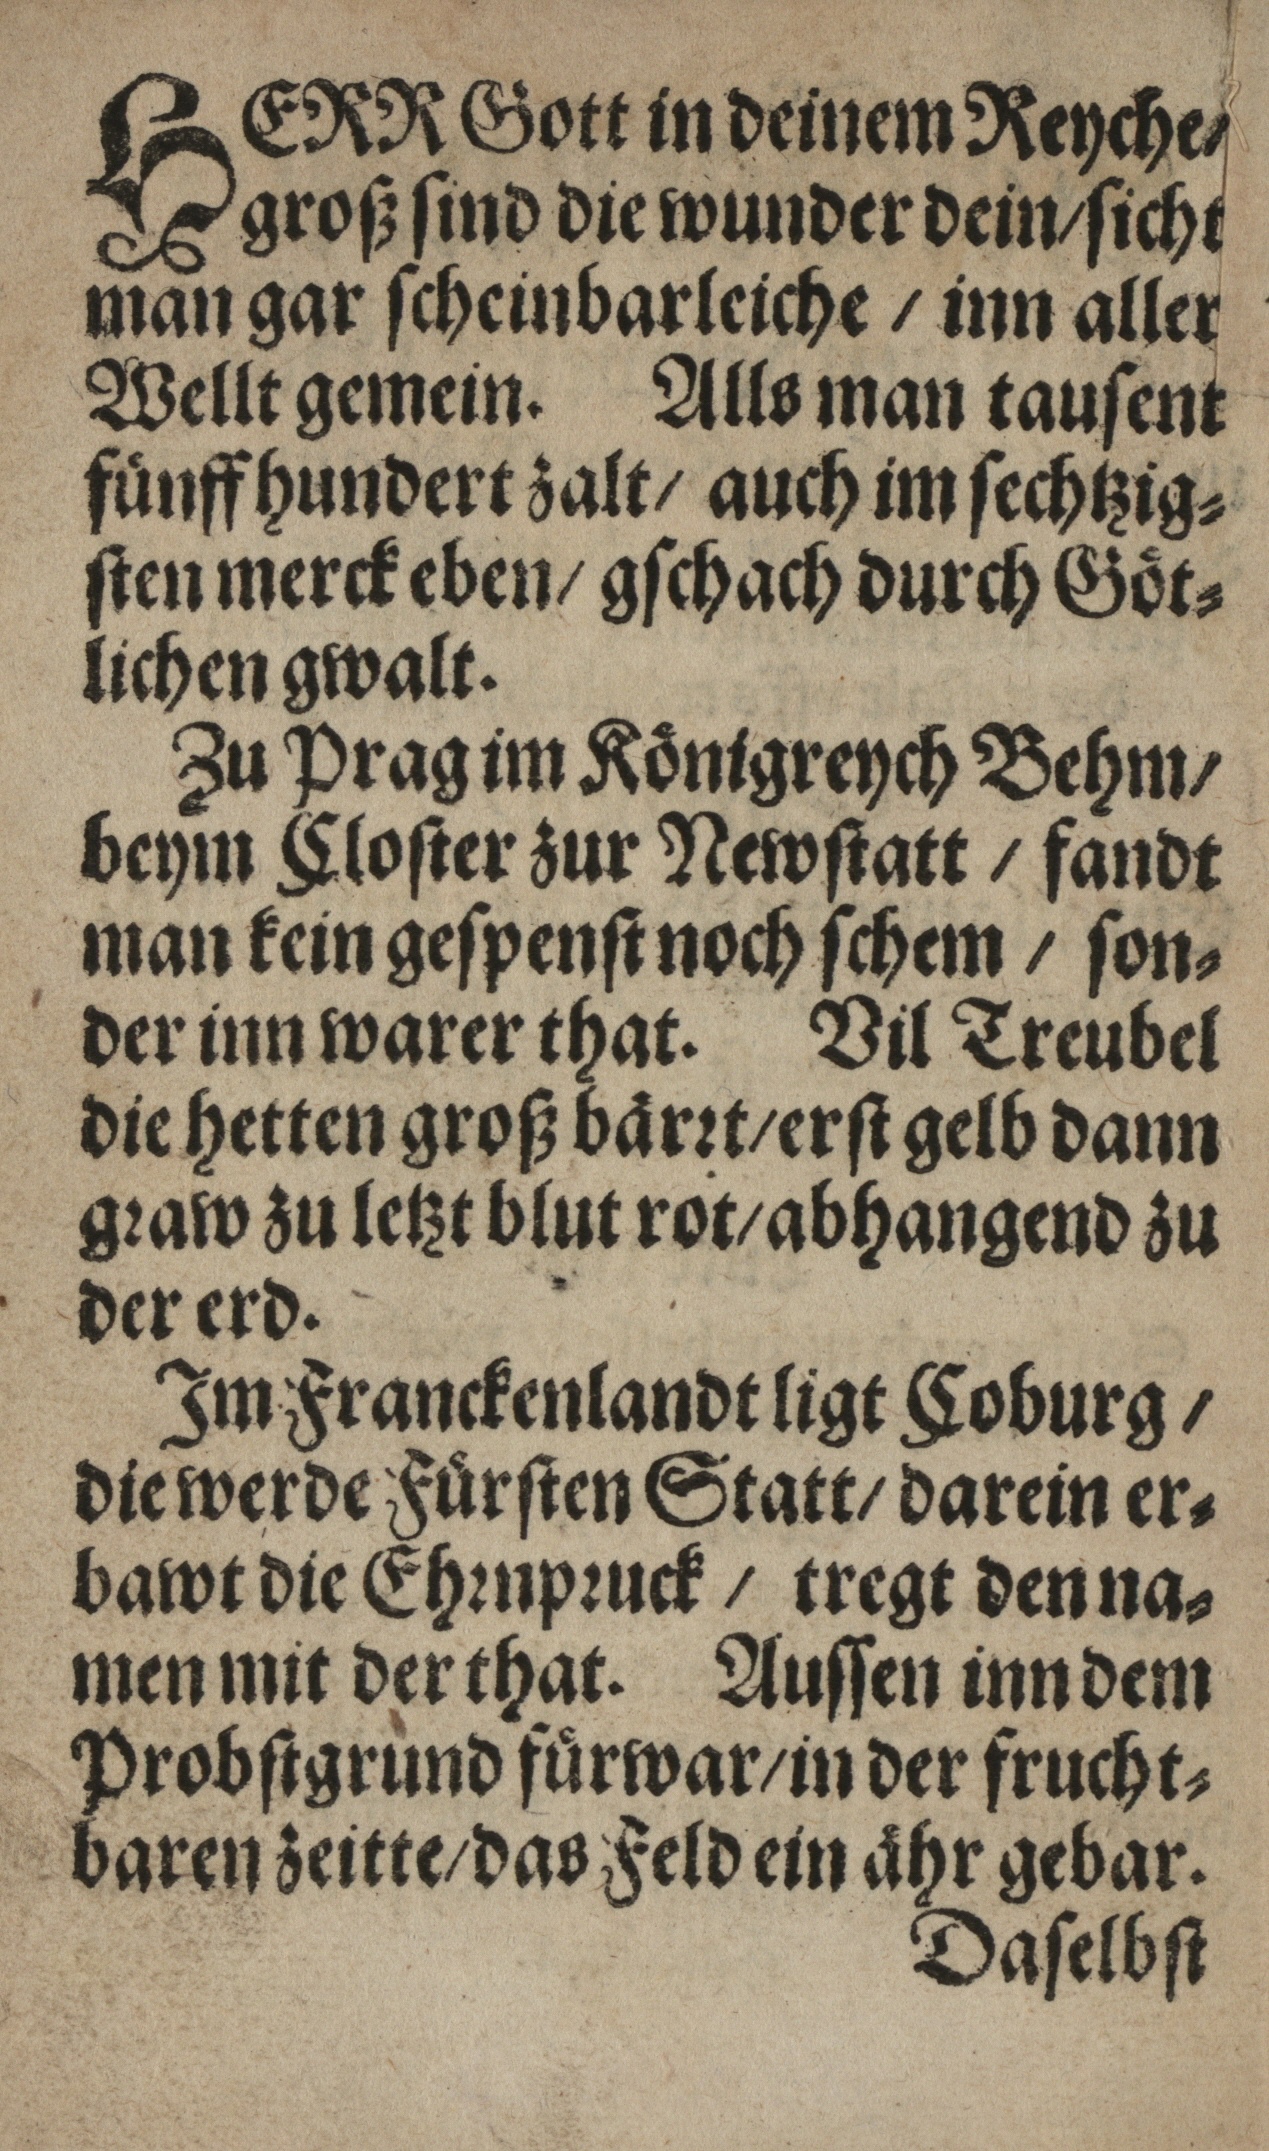 HERR Gott in deinem Reyche/
groß sind die wunder dein/sicht
man gar scheinbarleiche / inn aller
Wellt gemein. Alls man tausent
fünff hundert zalt/ auch im sechtzig⸗
sten merck eben/ gschach durch Göt⸗
lichen gwalt.
Zu Prag im Königreych Behm/
beym Closter zur Newstatt / fandt
man kein gespenst noch schem / son⸗
der inn warer that. Vil Treubel
die hetten groß bärrt/erst gelb dann
graw zu letzt blut rot/abhangend zu
der erd.
Im Franckenlandt ligt Coburg /
die werde Fürsten Statt/ darein er⸗
bawt die Ehrnpruck / tregt den na⸗
men mit der that. Aussen inn dem
Probstgrund fürwar/in der frucht⸗
baren zeitte/das Feld ein ähr gebar.
Daselbst